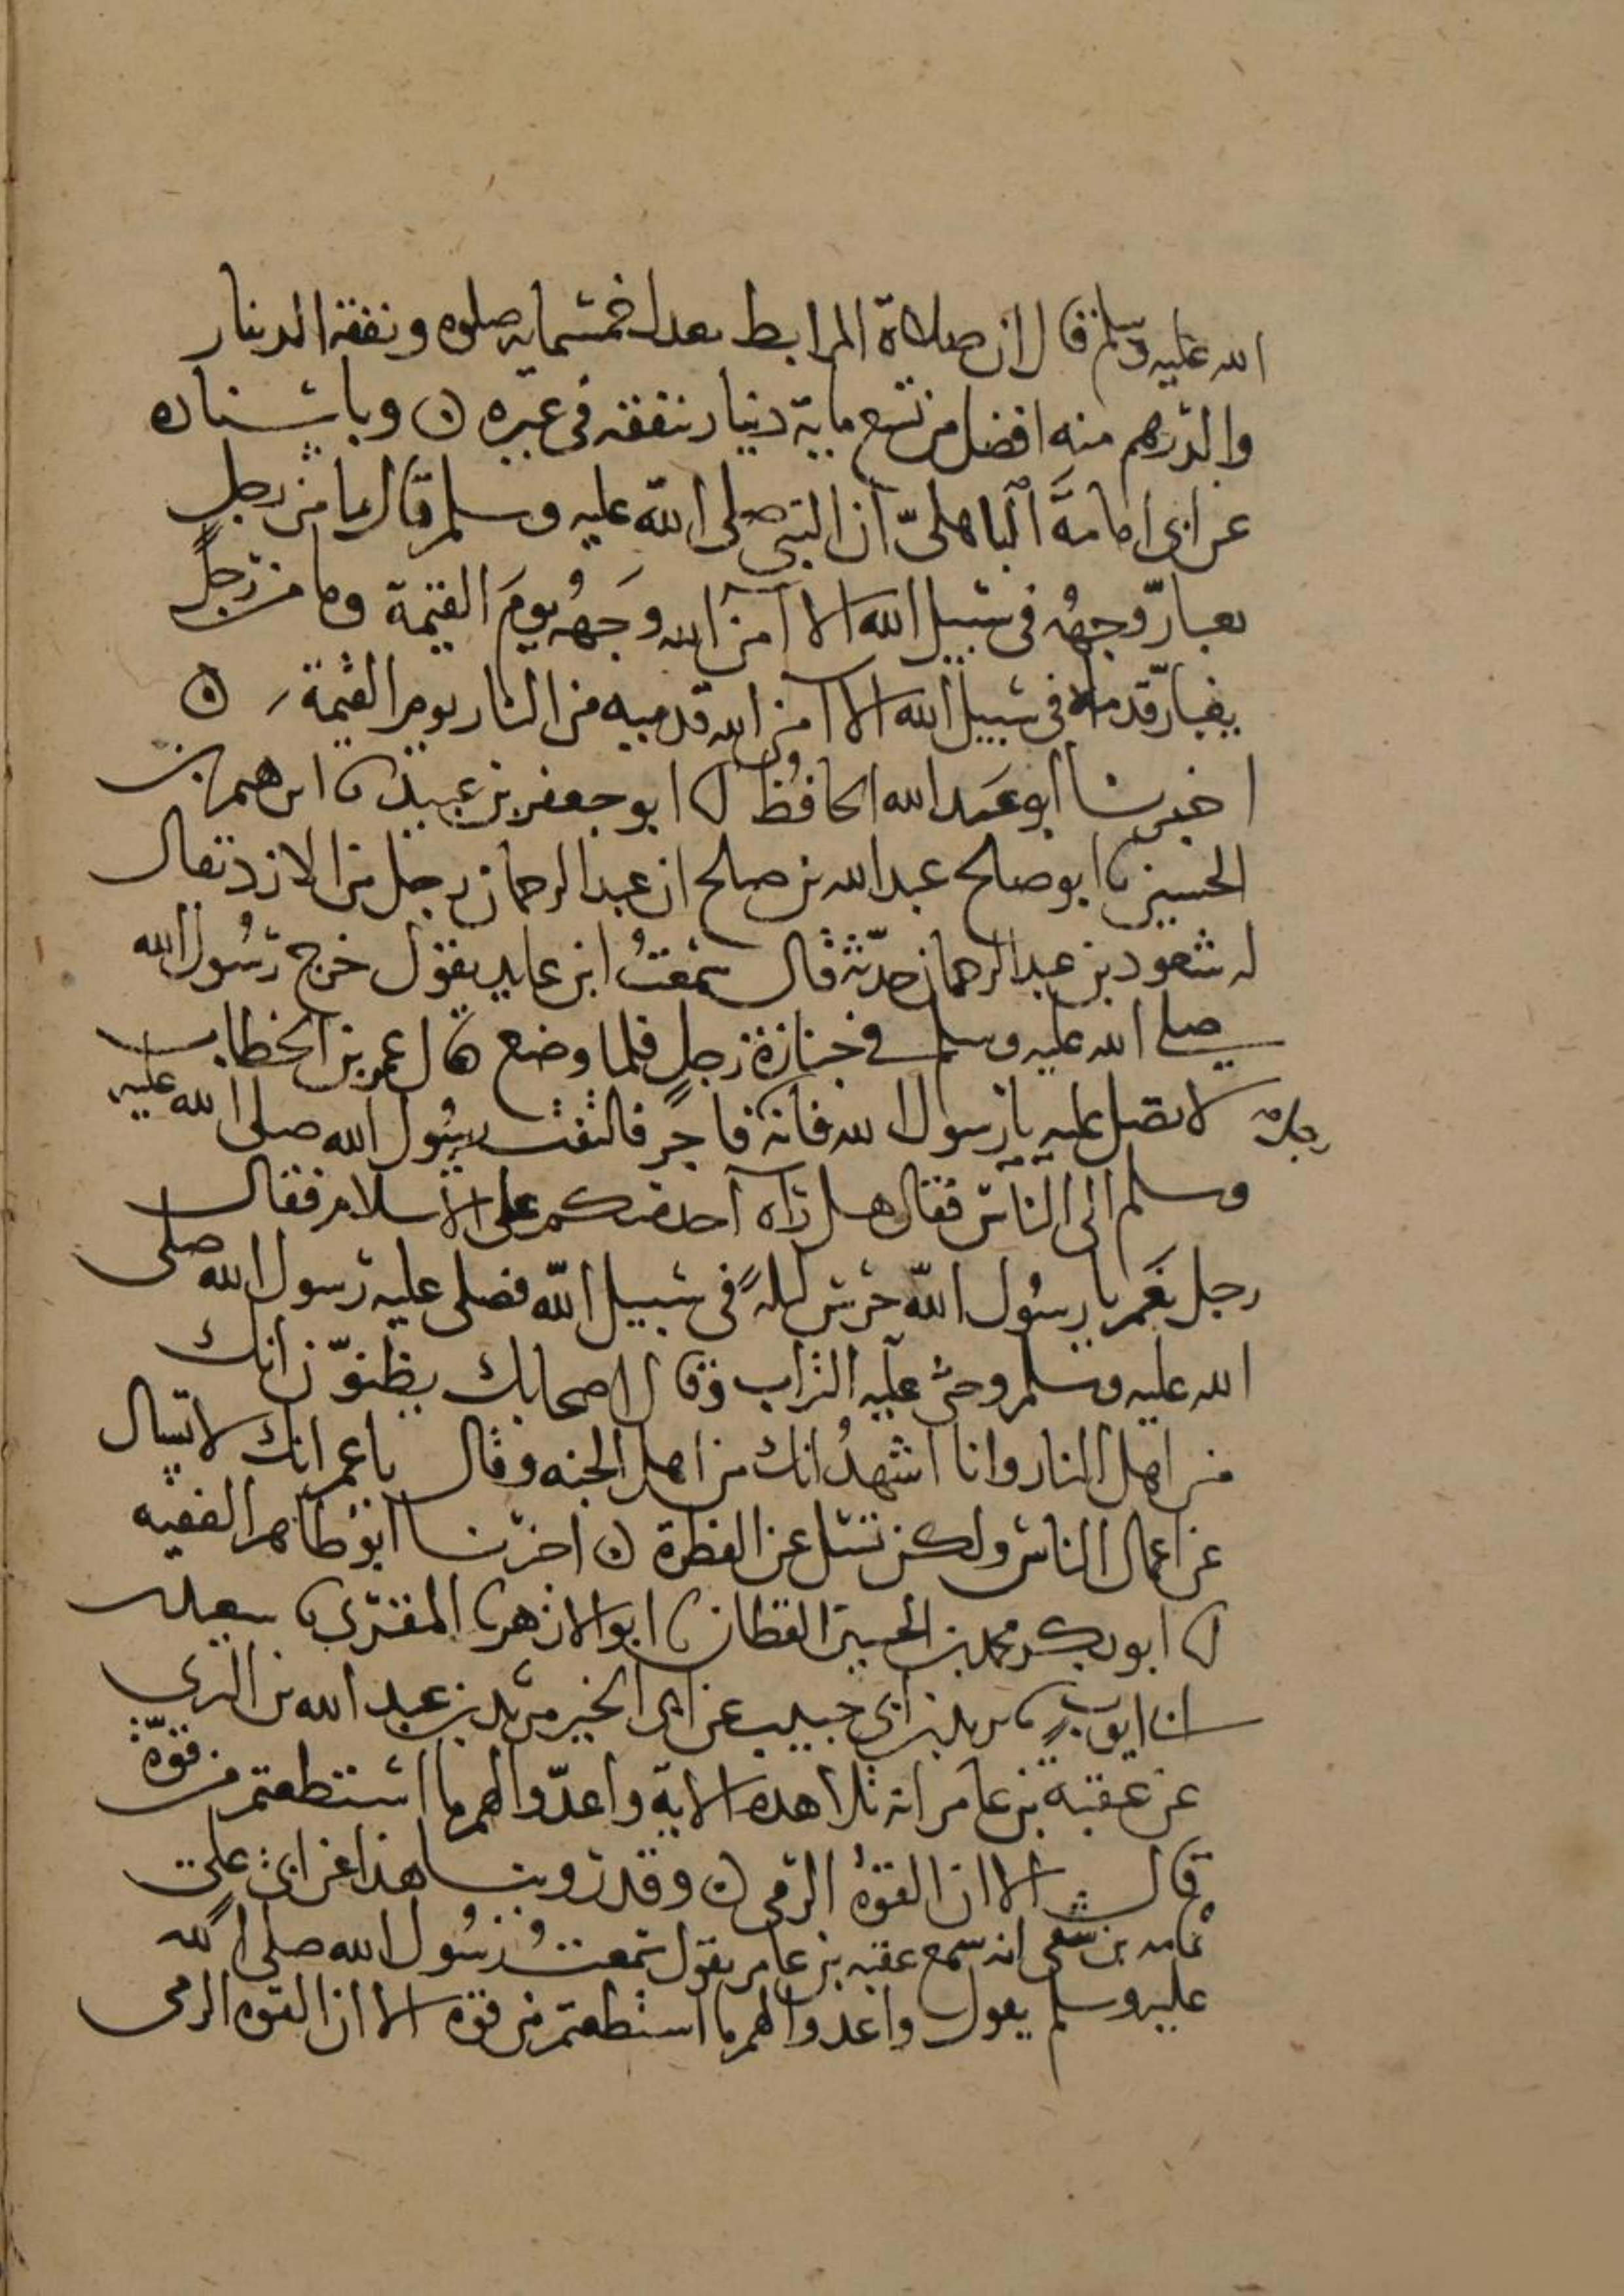 الله عليه وسلم قال ان صلاة المرابط تعدل خمسماية صلوه ونفقة الدينار
والدرهم منه افضل من تسع ماية دينار ينفقه في غيره ن وباسناده
عن ابى امامة الباهلىّ ان النبى صلى الله عليه وسلم قال ما من رجل
يغبارّ وجهُه فى سبيل الله الا امن الله وجهه يومَ القيمة وما من رجلٍ
يغبارّ قدماه فى سبيل الله الا امن الله قدميه من النار يوم القيمة ن
اخبرنا ابو عبد الله الحافظ انا ابو جعفر بن عبيد نا ابرهيم بن
الحسين نا ابو صلح عبد الله بن صلح ان عبد الرحمان رجل من الازد يقال
له شعوذ بن عبد الرحمان حدّثه قال سمعتُ ابن عايد يقول خرج رسُول الله
صلى الله عليه وسلم فى جنازة رجلٍ فلما وضع قال عمر بن الخطاب
لا تصل عليه يا رسول الله فانه فاجر فالتفت رسُول الله صلى الله عليه
وسلم الى الناس فقال هل رآه احد منكم على الاسلام فقال
رجل نعم يا رسُول الله حرس ليلةً فى سبيل الله فصلى عليه رسول الله صلى
الله عليه وسلم وحثى عليه التراب وقال اصحابك يظنوّن انك
من اهل النار وانا اشهدُ انك من اهل الجنه وقال يا عمر انك لا تسال
عن اعمال الناس ولكن تسئل عن الفطرة ن اخبرنا ابو طاهر الفقيه
انا ابو بكر محمد بن الحسين القطان نا ابو الازهر نا المقرى نا سعيد
بن ابى ايوب نا يزيد بن ابى حبيب عن ابى الخير مرثد بن عبد الله بن اليزني
عن عقبة بن عامر انه تلا هذه الاية واعدّوا لهم ما استطعتم من قوّة
قال الا ان القوة الرمى ن وقد روينا هذا عن ابى على
ثمامه بن شفى انه سمع عقبه بن عامر يقول سمعت رسُول الله صلى الله
عليه وسلم يقول واعدوا لهم ما استطعتم من قوة الا ان القوه الرمى